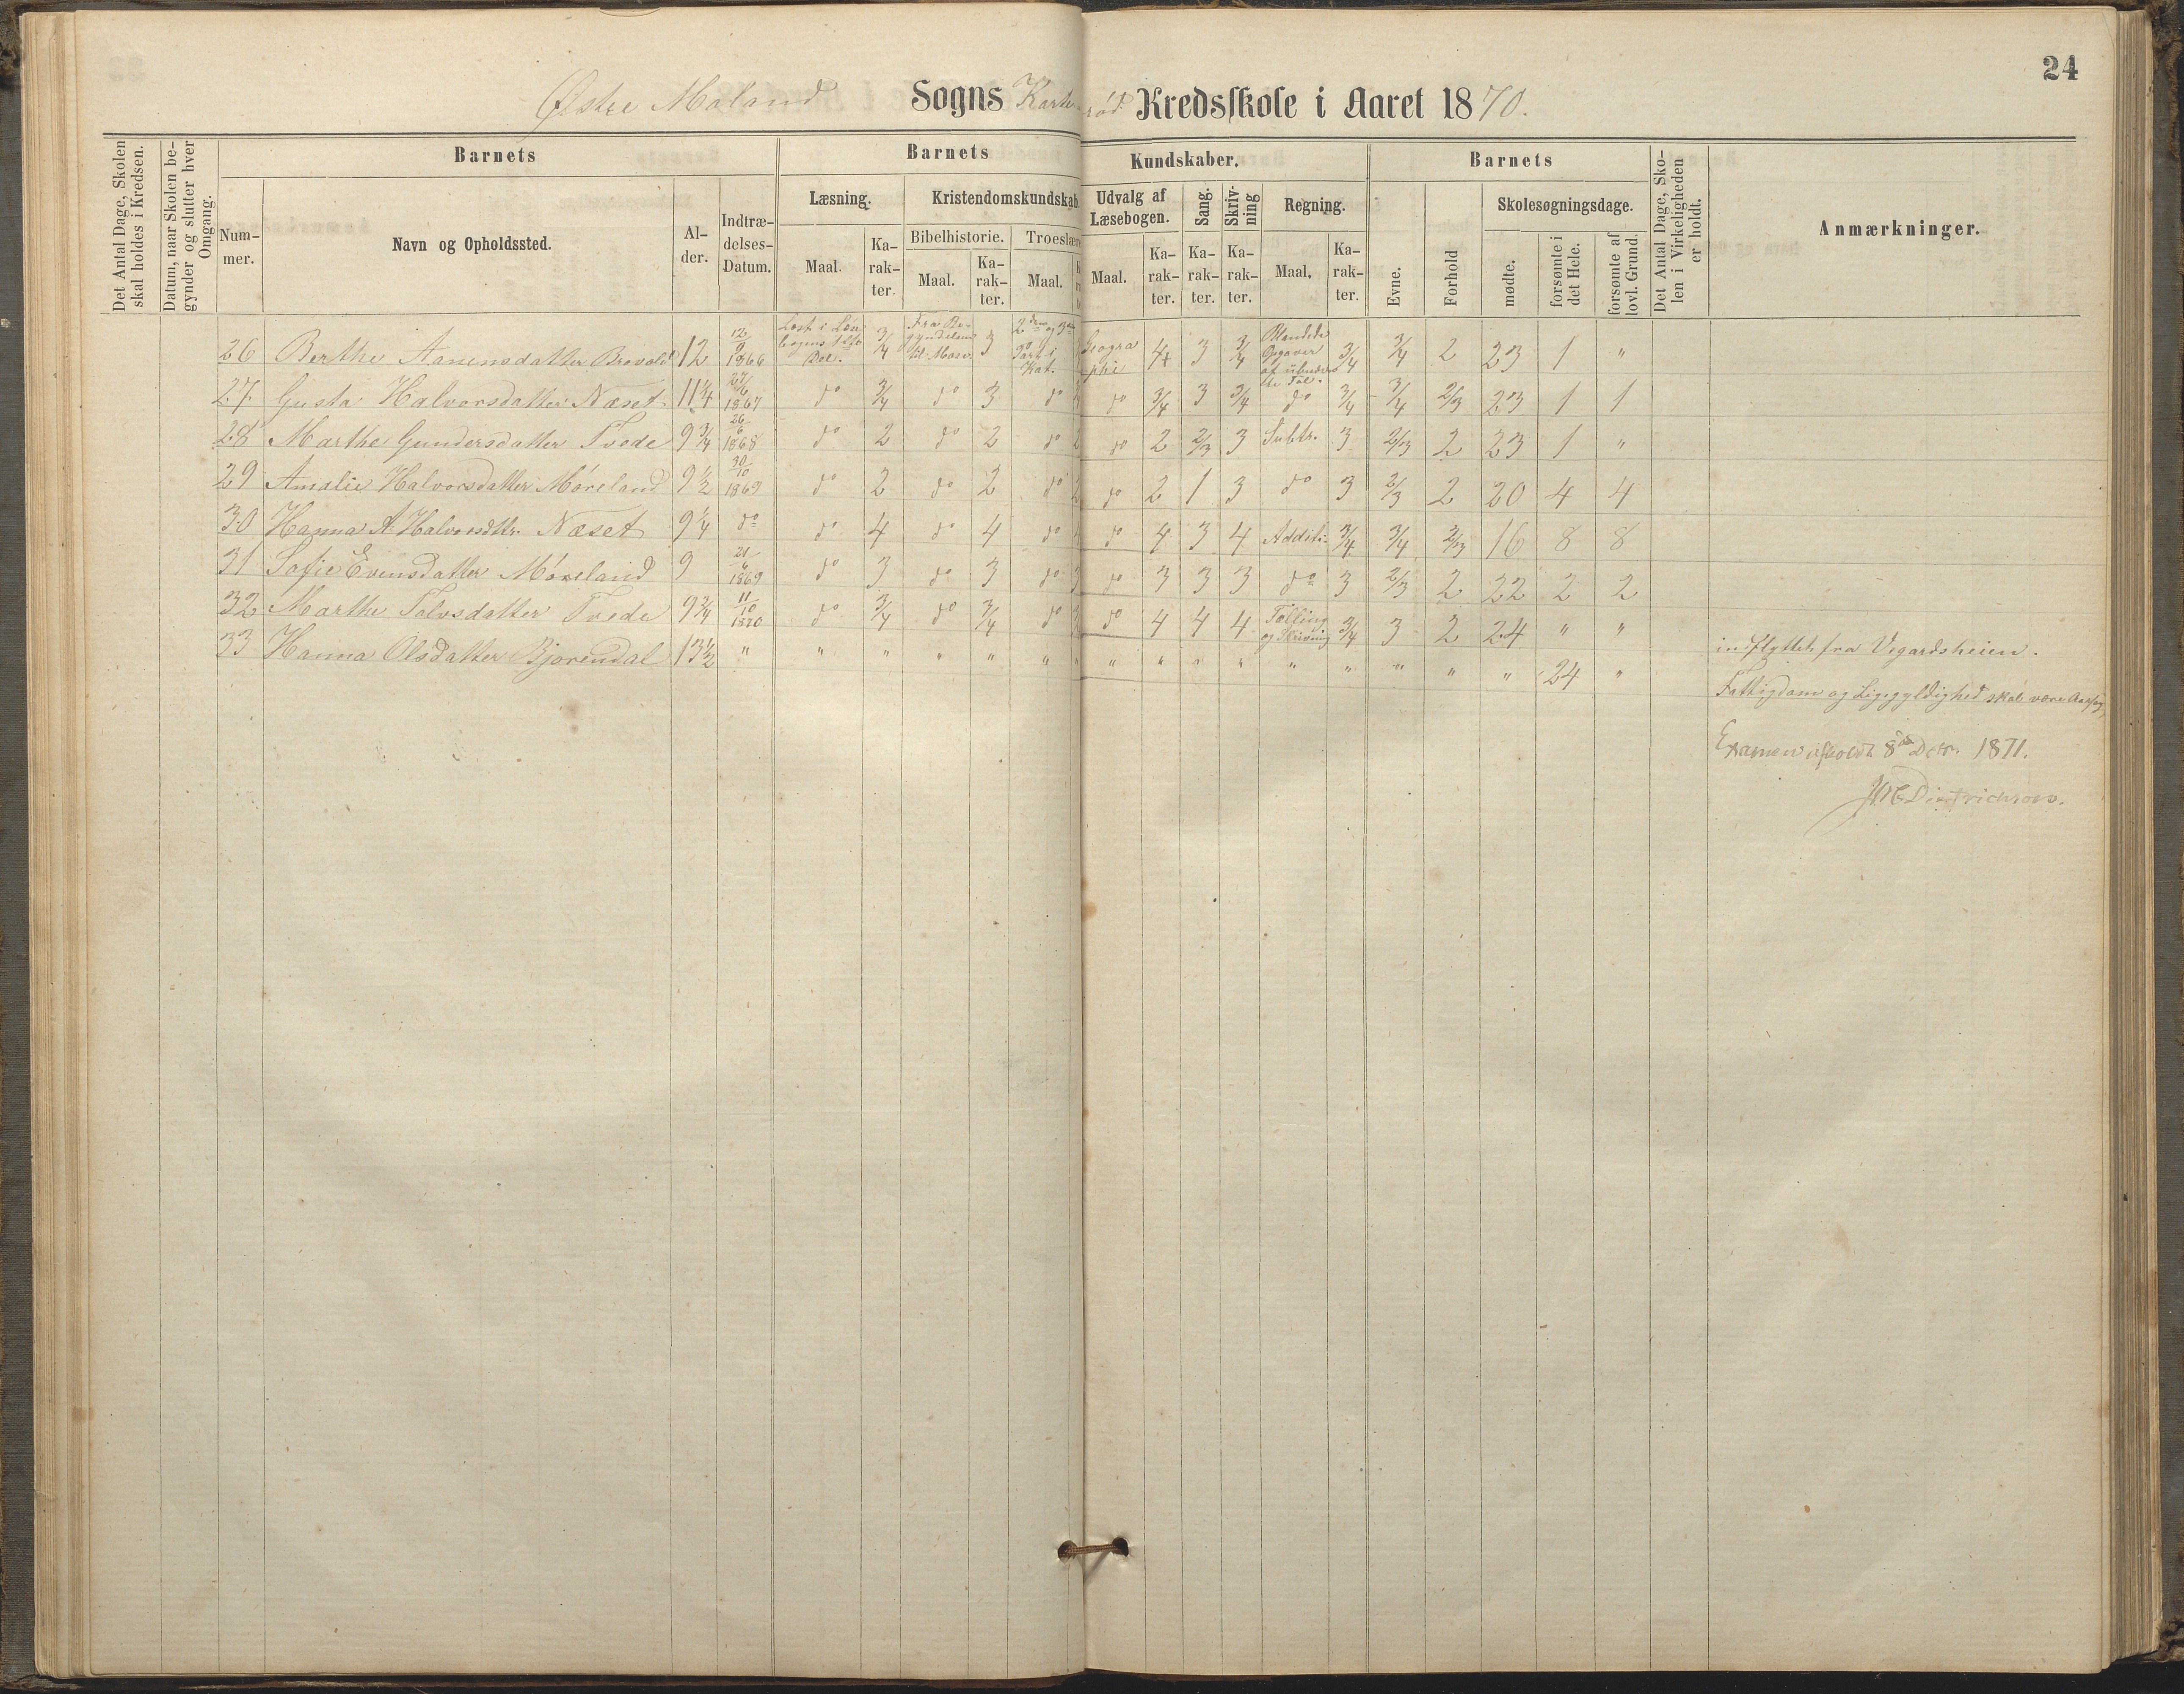 24
Østre Moland Sogns Karterød Kredsskole i Aaret 1870.
Det Antal Dage, Skolen skal holdes i Kredsen.
Datum, naar Skolen begynder og slutter hver Omgang.
Barnets
Nummer.
Navn og Opholdssted.
Alder.
Indtrædelses-Datum.
Barnets Kundskaber.
Læsning.
Maal.
Karakter.
Kristendomskundskab.
Bibelhistorie.
Maal.
Karakter.
Troeslære
Maal.
Udvalg af Læsebogen.
Maal.
Karakter.
Sang.
Karakter.
Skrivning
Karakter.
Regning.
Maal.
Karakter.
Barnets
Evne.
Forhold
Skolesøgningsdage.
mødte.
forsømte i det Hele.
forsømte af lovl. Grund.
Det Antal Dage, Skolen i Virkeligheden er holdt.
Anmærkninger.
26 Berthe Aanensdatter 12 12/9 1866 3/4 3 2den og 3die Part i Kat. Geographi 4+ 3 3/4 Blandede Opgaver 3/4 3/4 2 23 1 "
27 Gusta Halvorsdatter Næset 11 1/4 1867 do 3/4 do 3 do do 3/4 3 3/4 do 3/4 3/4 2/3 23 1 1
28 Marthe Gundersdatter Tvede 9 3/4 26/6 1868 do 2 do 2 do 2 do 2 2/3 3 Subtr. 3 2/3 2 23 1 "
29 Amalie Halvorsdatter Møreland 9 1/2 30/10 1869 do 2 do 2 do 2 do 2 1 3 do 3 2/3 2 20 4 4
30 Hanna A. Halvorsdtr. Næset 9 1/4 do do 4 do 4 do do 4 3 4 Additi: 3/4 3/4 2/3 16 8 8
31 Sofie Evensdatter Møreland 9 21/6 1869 do 3 do 3 do 3 do 3 3 3 do 3 2/3 2 22 2 2
32 Marthe Talvsdatter Tvede 9 3/4 11/10 1870 do 3/4 do 3/4 do do 4 4 4 Tælling og Skrivning 3/4 3 2 24 " " indflyttet fra Vegardsheien.
33 Hanna Olsdatter Bjorendal 13 1/2 " " " " " " " " " " " " " " " " 24 " Fattigdom og Ligegyldighed skal være
Examen afholdt 8de 1871.
Dietrichson.